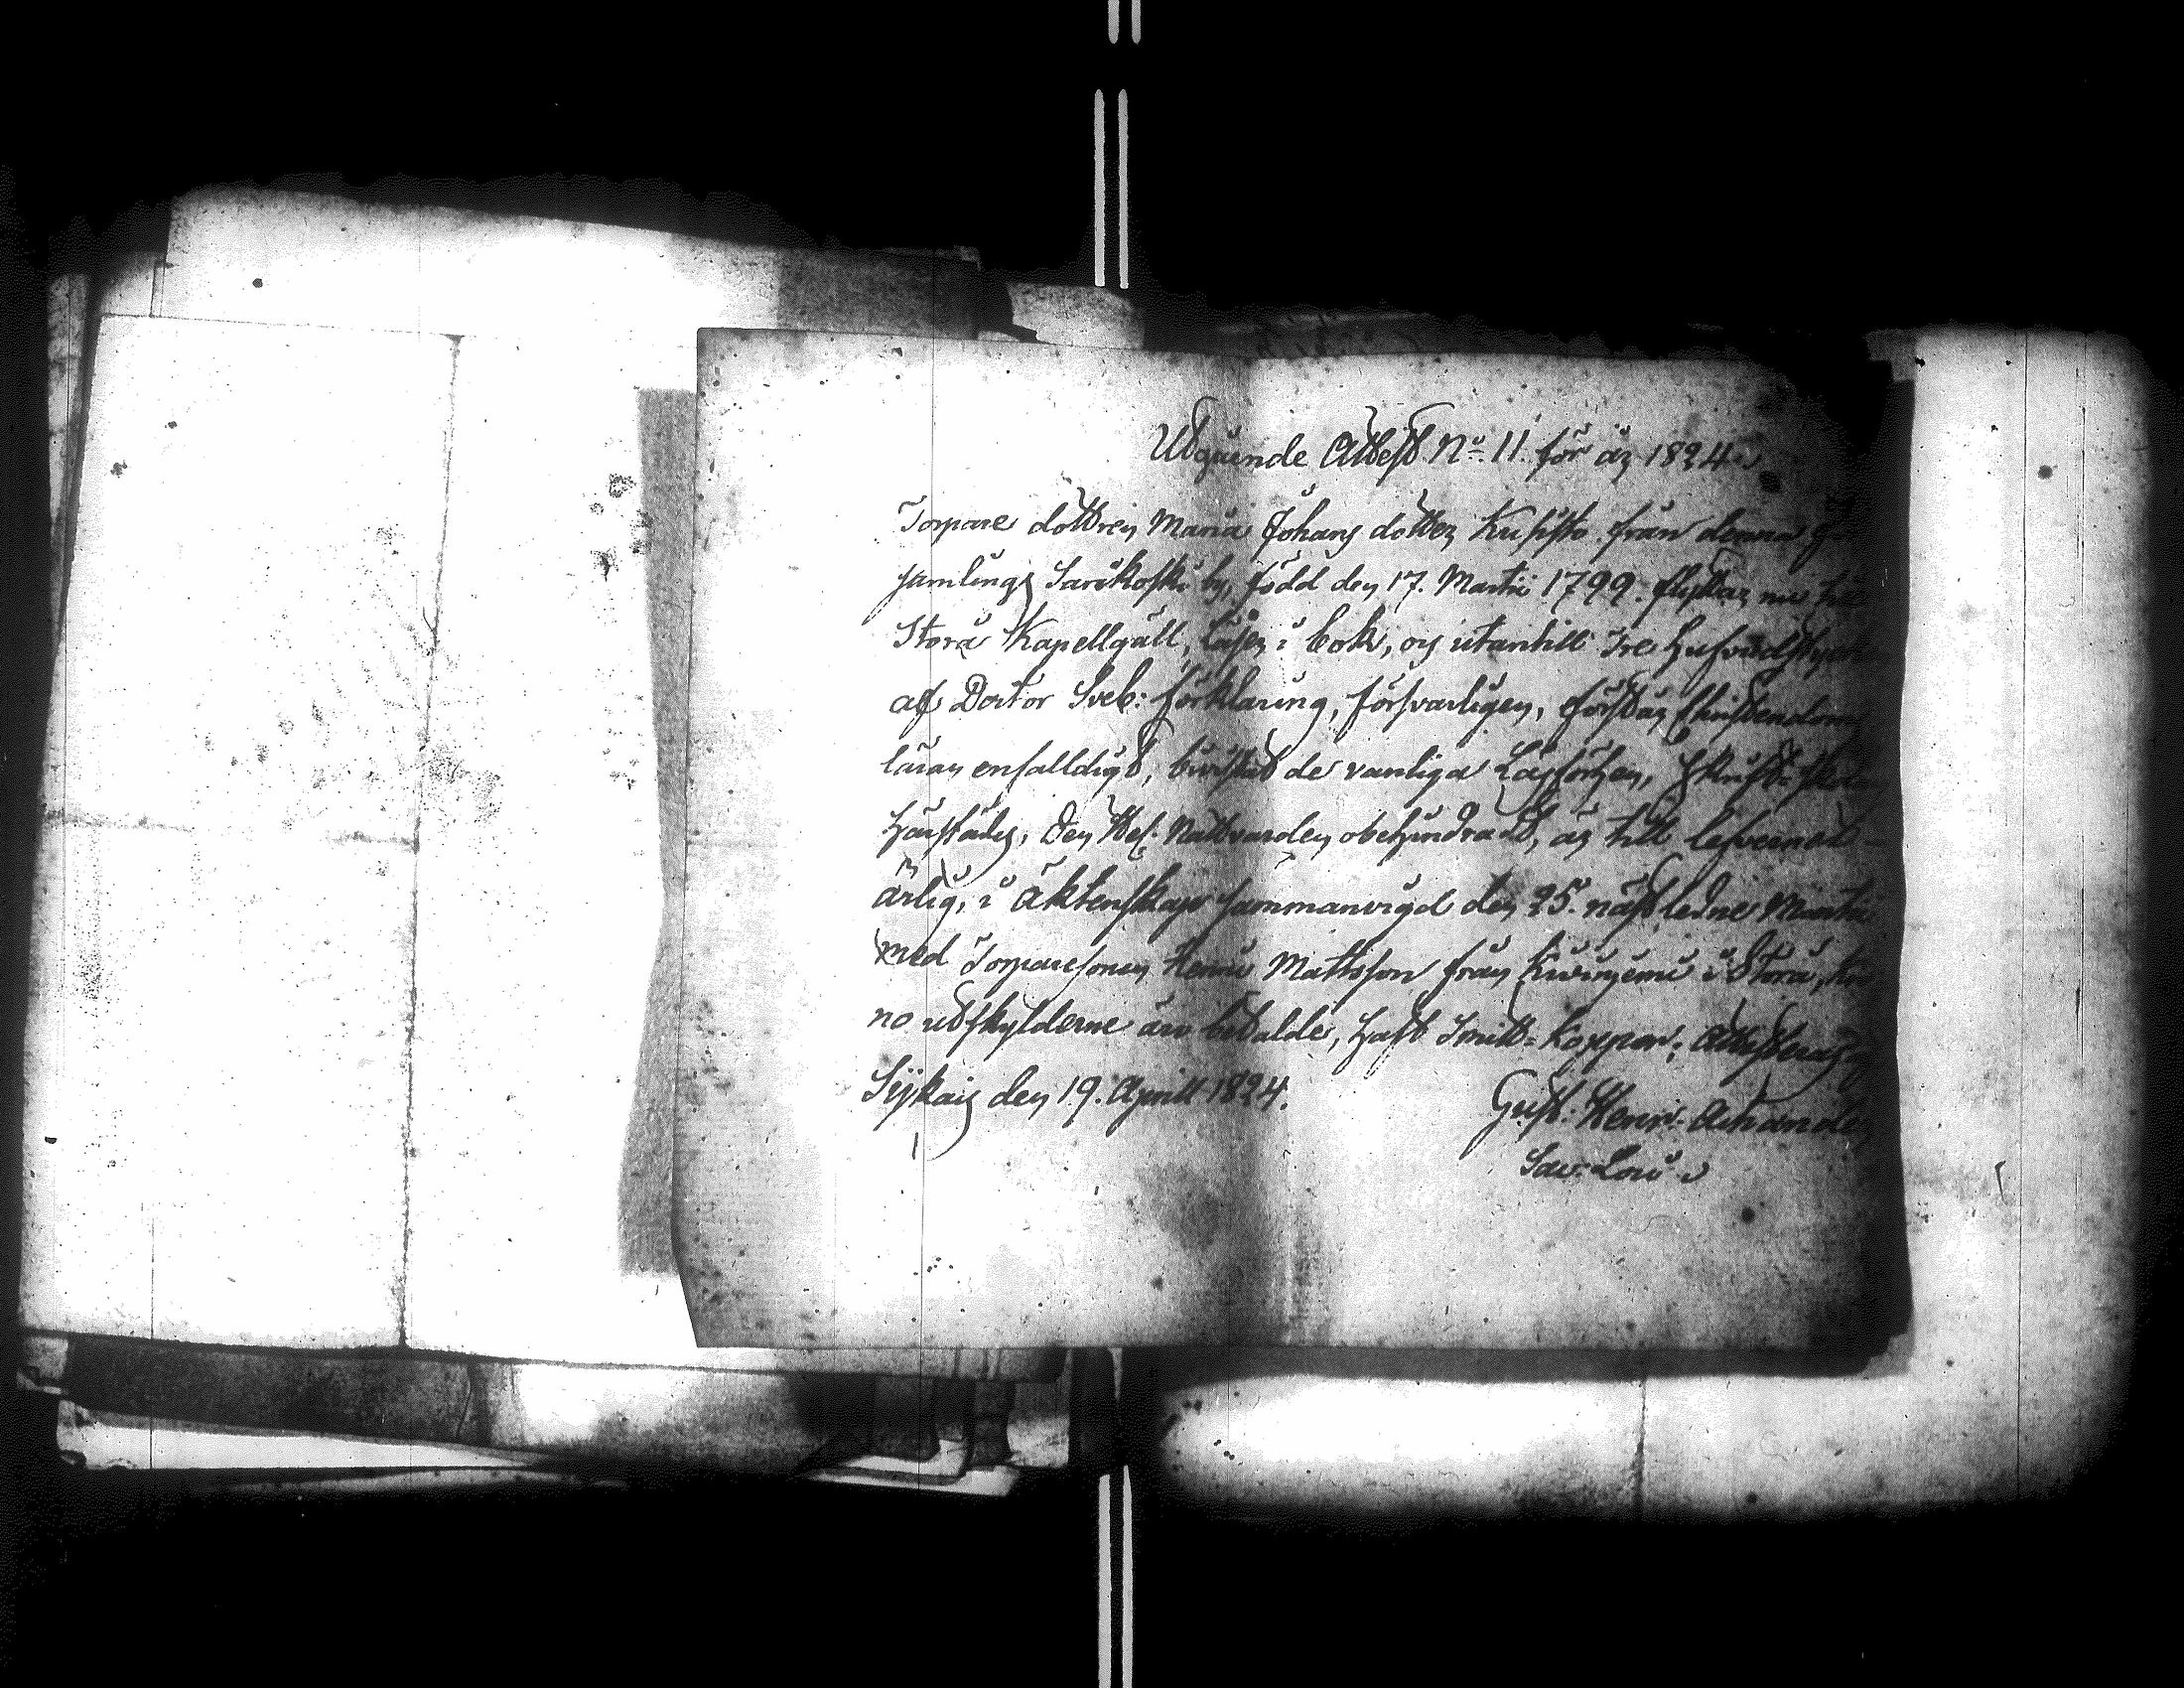 Utgående Attest No 11. för år 1824.
Torpare dottren Maria Johans dotter Kusisto från denna För
samlings Sarikoski by, född den 17. Martii 1799. flyttar nu till
Storå Kapellgäll, läser i bok, och utantill Tre Hufvudstycken
af Doctor Sveb: förklaring, försvarligen, förstår Christendoms
läran enfalldigt, bivistat de vanliga Läsförhör, Skrift-Skolar
härstädes, den H. Nattvarden obehindradt, är till lefvernet
ärlig, i äktenskap sammanvigd den 25. nästledne Martii
med Torparesonen Henric Mattsson från Kurikemi i Storå, kro
no utskylderne äro betalde, haft Smitt-koppor; Attesteras,
Sijkais den 19. Aprill 1824.
Gust: Henr: Achander
Sac: Loci